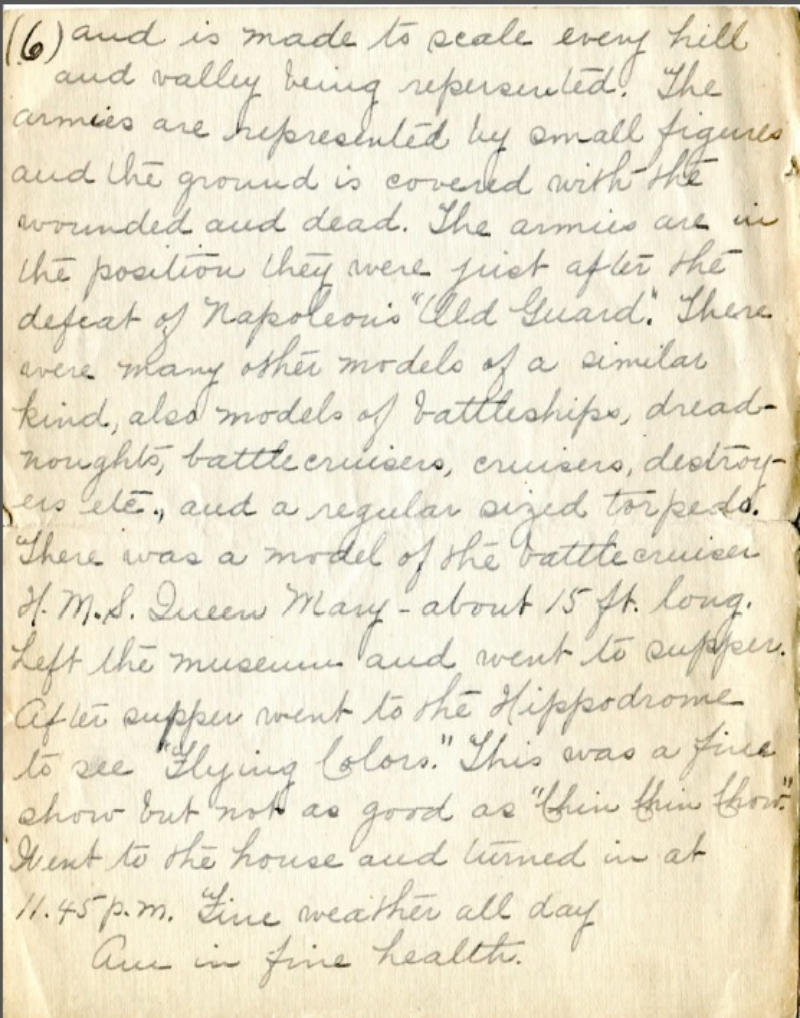 (6) and is made to scale every hill
and valley being repersented. The
armies are represented by small figures
and the ground is covered with the
wounded and dead. The armies are in
the position they were just after the
defeat of Napoleon's "Old Guard". There
were many other models of a similar
kind, also models of battleships, dread-
noughts, battlecruisers, cruisers, destroy-
ers etc., and a regular sized torpedo.
There was a model of the battlecruiser
H.M.S. Queen Mary - about 15 ft. long.
Left the museum and went to supper.
After supper went to the Hippodrome
to see "Flying Colors." This was a fine
show but not as good as "Chin Chin Chow."
Went to the house and turned in at
11.45 p.m. Fine weather all day
Am in fine health.